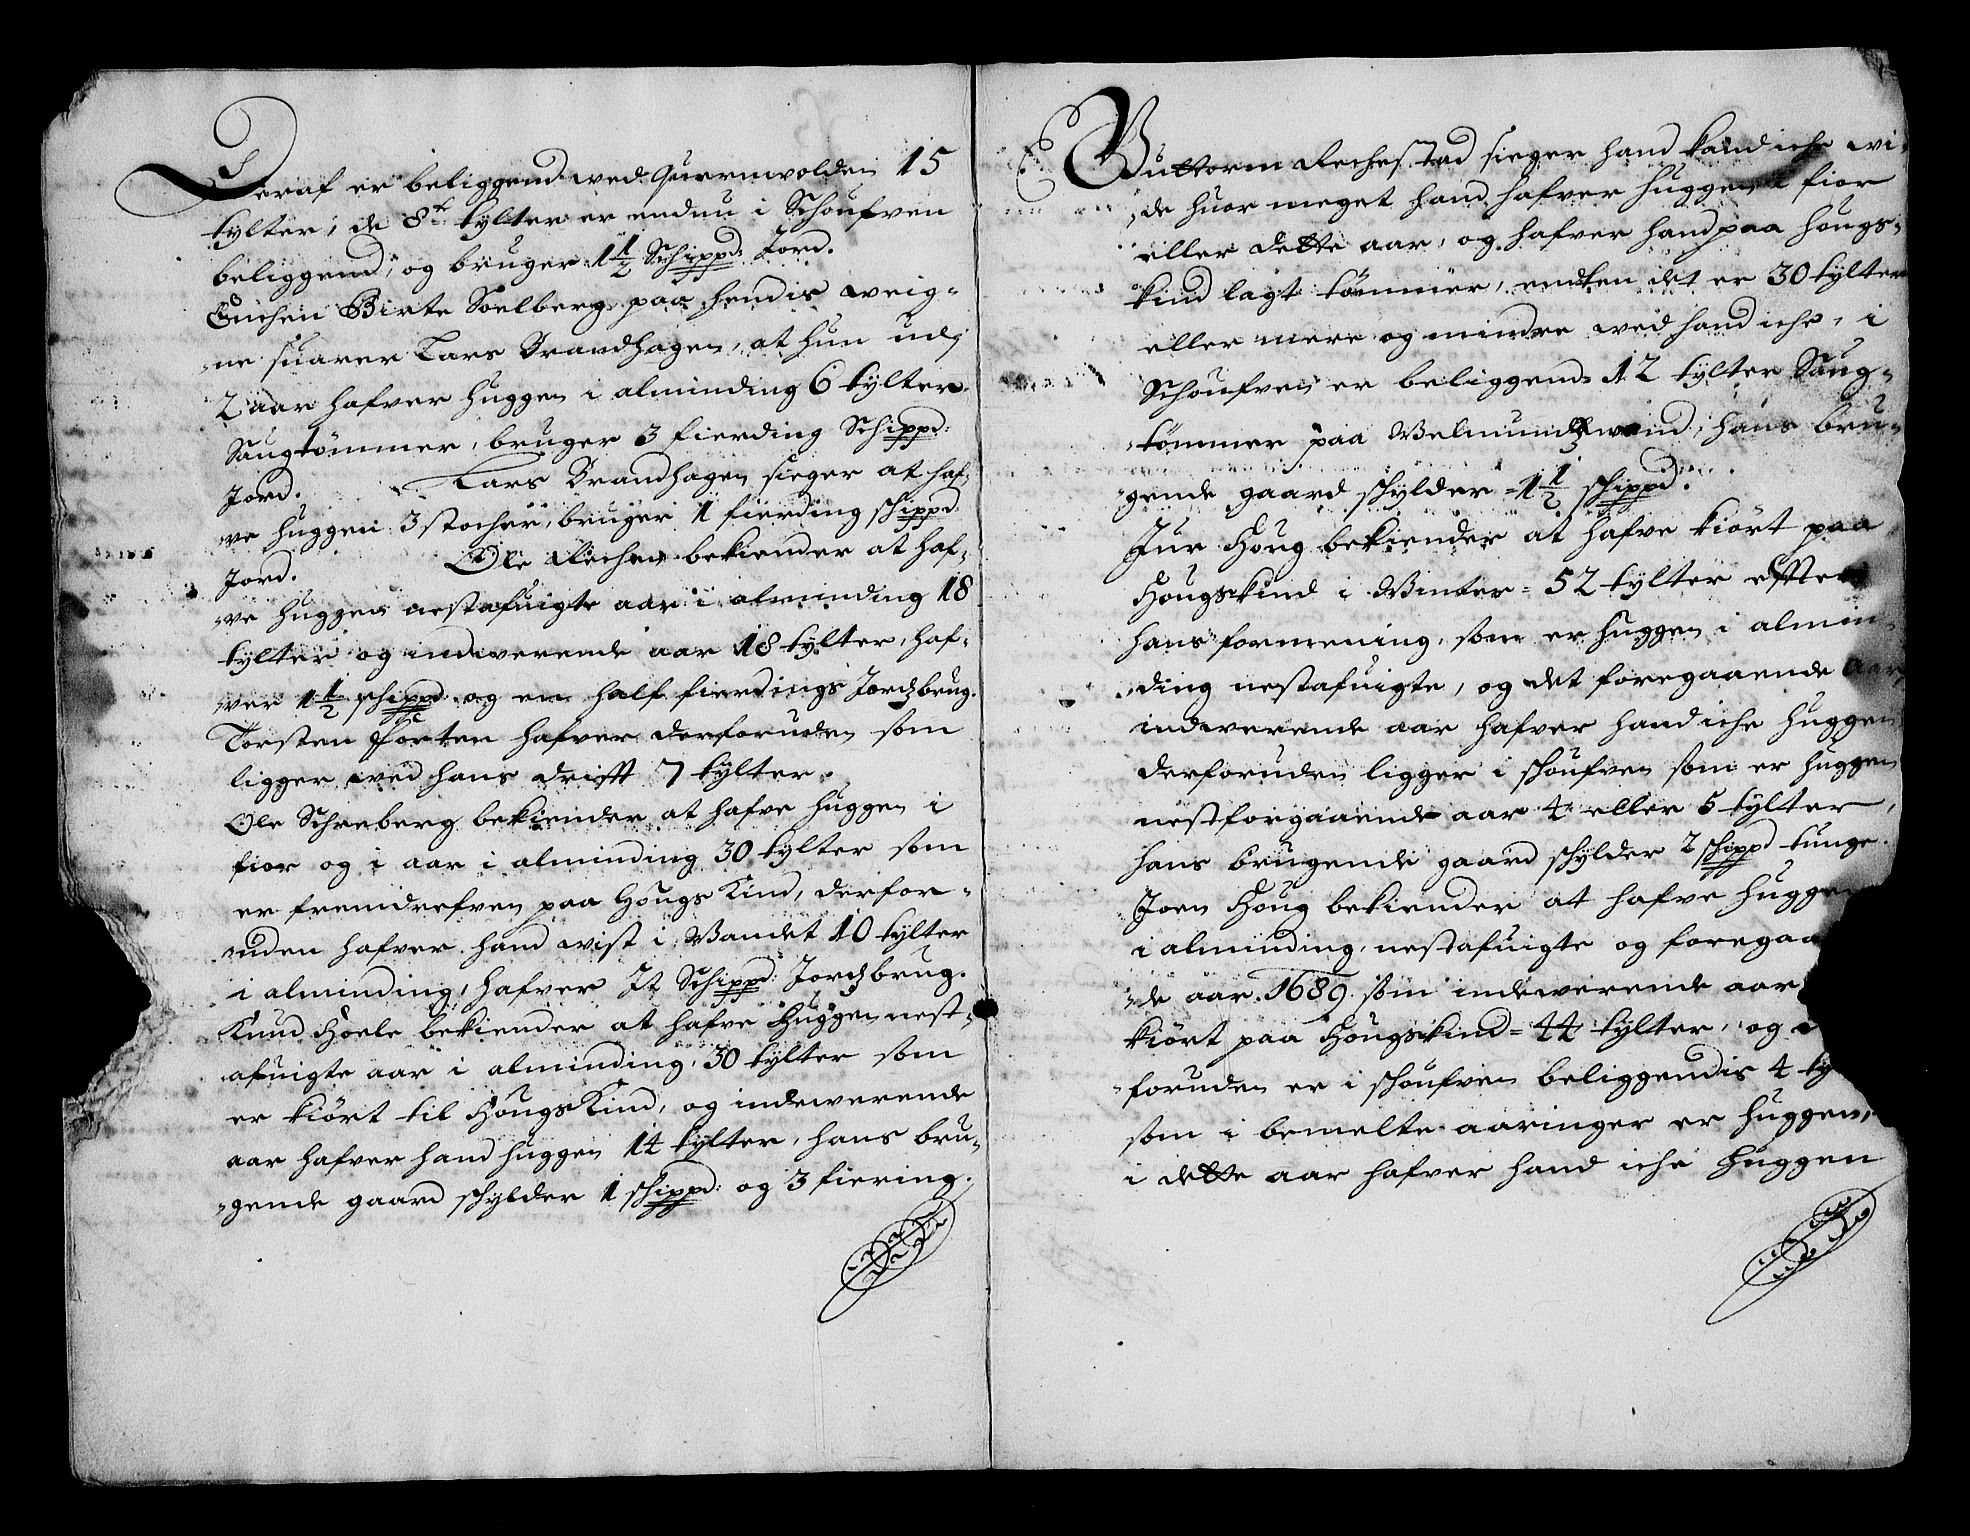 Deraf er beliggend ved Quernvolden 15
tylter, de 8te tylter er endnu i Schoufven
beliggend, og bruger 1 1/2 Schippd: Jord.
Enchen Birte Soelberg, paa hendis weig-
ne suarer Lars Brandhagen, at hun udj
2 aar hafver huggen i alminding 6 tylter
Saugtømmer, bruger 3 fierding Schippd:
Jord. Lars Brandhagen sieger at haf-
ve huggen 3 stocher, bruger 1 fierding schippd:
Jord. Ole Rechen bekiender at haf-
ve huggen nestafuigte aar i alminding 18
tylter og indeverende aar 18 tylter, haf-
ver 1 1/2 schippd: og en half fierdings Jordsbrug.
Torsten Horten hafver derforuden som
ligger wed hans drifft 7 tylter.
Ole Schreberg bekiender at hafve huggen i
fior og i aar i alminding 30 tylter som
er fremdrefven paa Hougs Kind, derfor-
uden hafver hand wist i Wandet 10 tylter
i alminding, hafver Schippd: Jordsbrug.
Knud Hoele bekiender at hafve huggen nest-
afuigte aar i alminding 30 tylter som
er kiørt til Hougs Kind, og indewerende
aar hafver hand huggen 14 tylter, hans bru-
gende gaard schylder 1 schippd: og 3 fiering.
Guttorm Rechestad sieger hand kand iche wi-
de huor meget hand hafver huggen i fior
eller dette aar, og hafver hand paa Hougs-
kind lagt tømmer, endten det er 30 tylter
eller mere og mindre wed hand iche, i
Schoufven er beliggend 12 tylter Saug-
tømmer paa Welmunds wand, hans bru-
gende gaard schylder 1 1/2 schippd.
Jur Houg bekiender at hafve kiørt paa
Hougskind i Winter 52 tylter effter
hans formening, som er huggen i almin-
ding nestafuigte, og det foregaaende aar,
indeverende aar hafver hand iche huggen
derforuden ligger i schoufven som er huggen
nestforgaaende aar 4 eller 5 tylter,
hans brugende gaard schylder 2 schippd tunge.
Joen Houg bekiender at hafve huggen
i alminding, nestafuigte og foregaa
de aar 1689 som indeverende aar
kiørt paa Hougskind 44 tylter, og
foruden er i schoufven beliggendis 4 ty
som i bemelte aaringer er huggen,
i dette aar hafver hand iche huggen